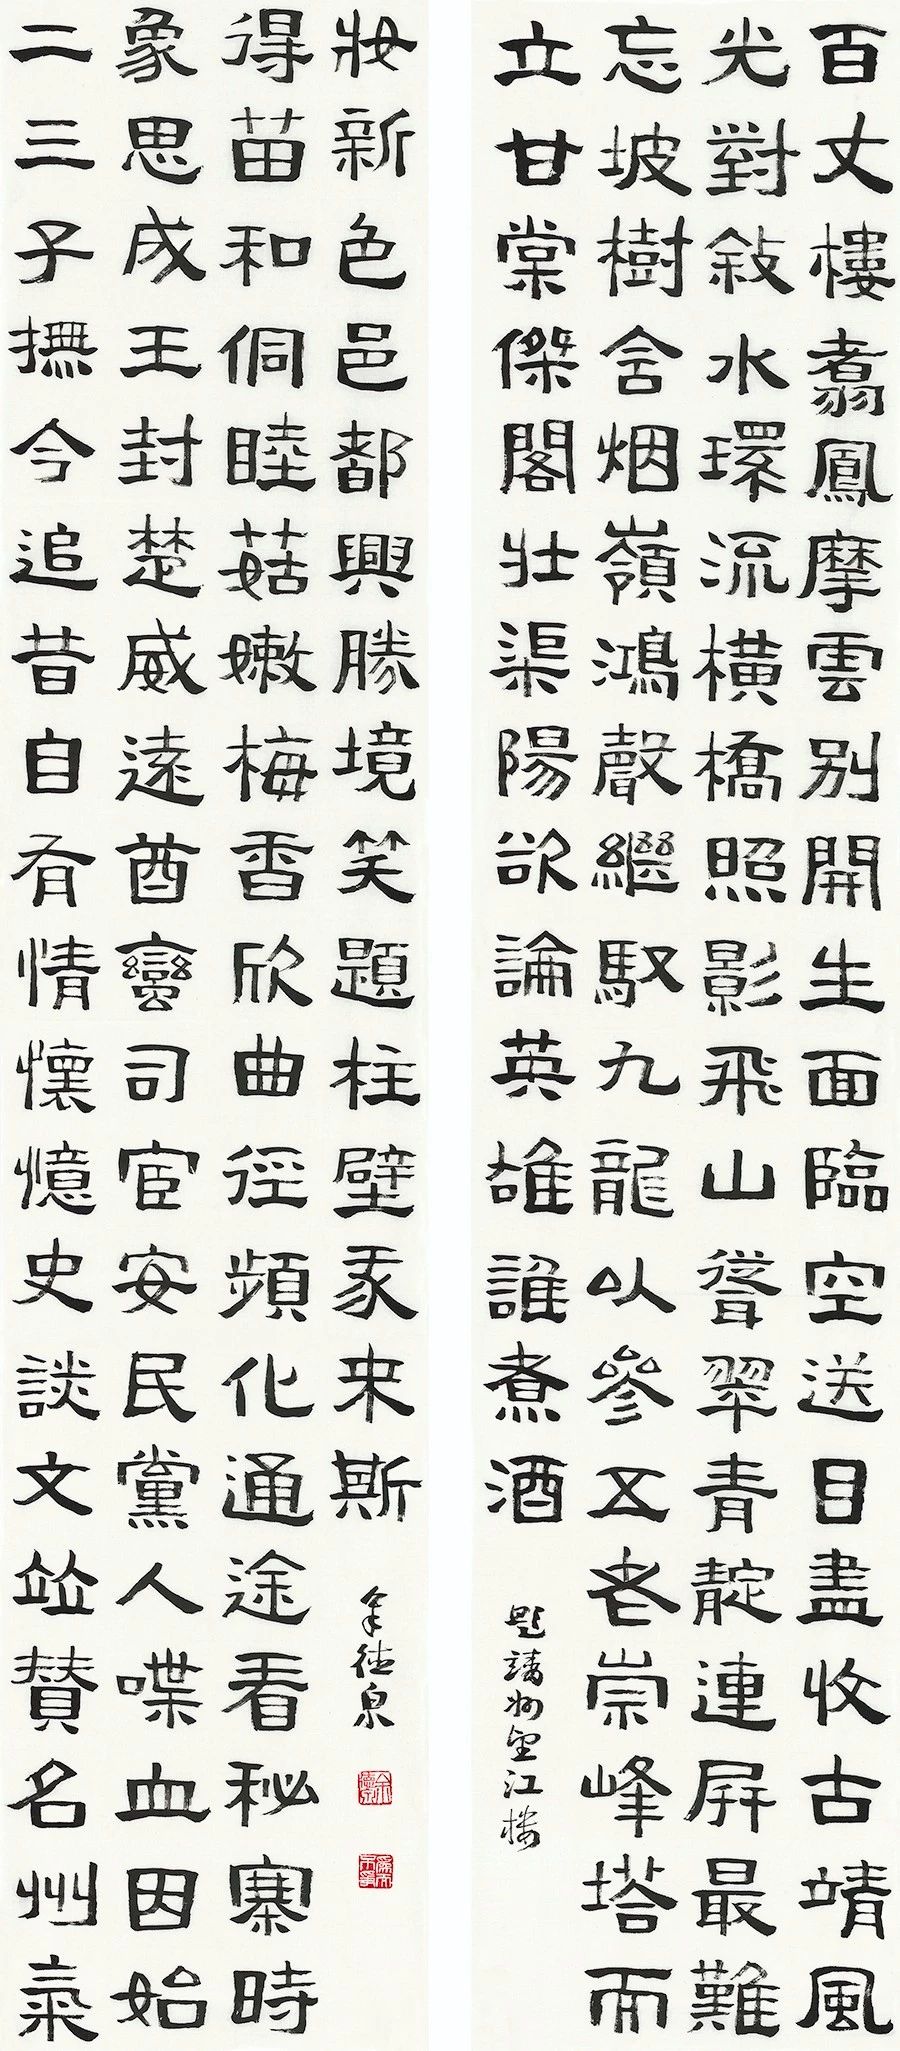 百丈樓翥鳳摩雲别開生面臨空送日盡收古靖風
光對敍水環流橫橋照影飛山聳翠青靛連屏最難
忘坡樹舍烟嶺鴻聲繼馭九龍以參五老崇峰塔而
立甘棠傑閣壯渠陽欲論英雄誰煮酒
題靖州望江樓
二三子撫今追昔自有情懷憶史談文竝贊名州氣
象思成王封楚威遠酋蠻司宦安民黨人喋血因始
得苗和侗睦菇嫩梅香欣曲徑頻化通途看秘寨時
妝新色邑都興勝境笑題柱壁我来斯
余德泉
余德泉
為而不爭